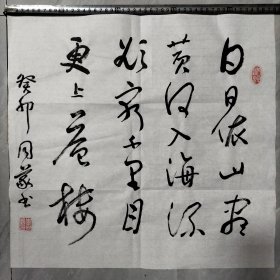 白日依山尽
黄河入海流
欲穷千里目
更上一层楼
癸卯
书